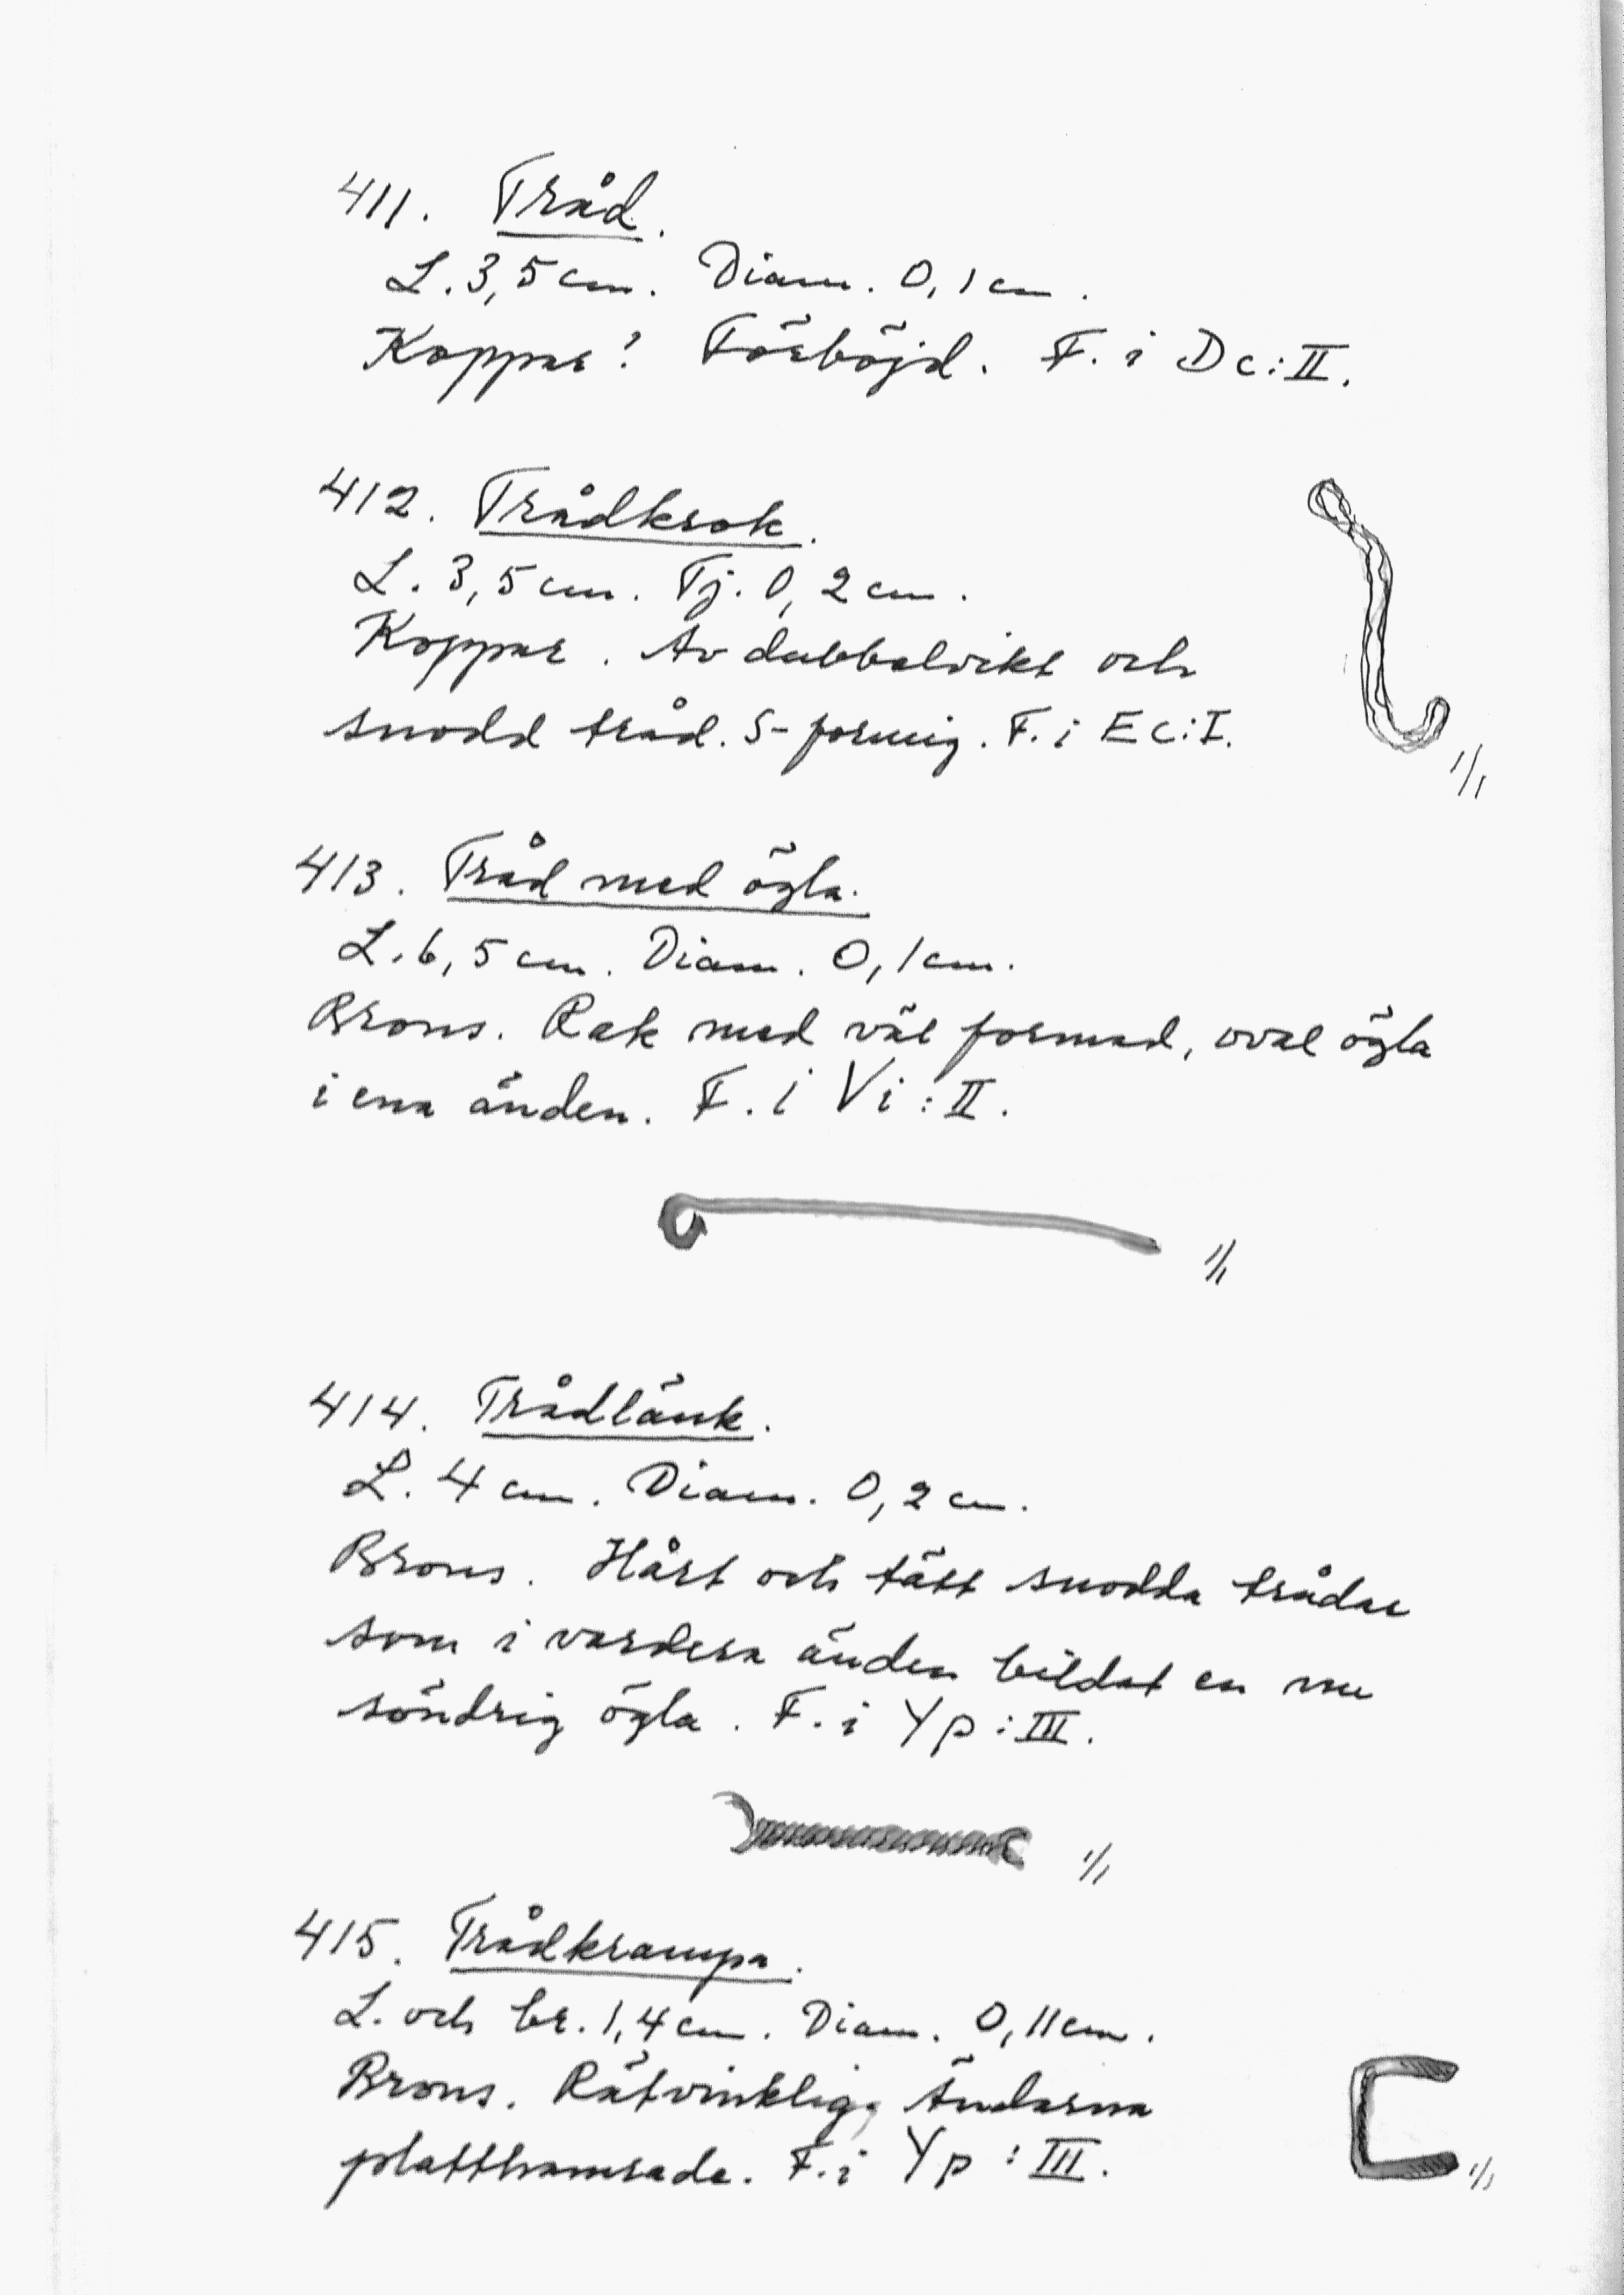 411. Tråd.
L. 3,5 cm. Diam. 0,1 cm.
Koppar? Förböjd. F. i Dc:II.
412. Trådkrok.
L. 3,5 cm. Tj. 0,2 cm.
Koppar. Av dubbelvikt och
snodd tråd. S-formig. F. i Ec:I.
1/1
413. Tråd med ögla.
L. 6,5 cm. Diam. 0,1 cm.
Brons. Rak med väl formad, oval ögla
i ena änden. F. i Vi:II.
1/1
414. Trådlänk.
L. 4 cm. Diam. 0,2 cm.
Brons. Hårt och tätt snodda trådar
som i vardera änden bildat en nu
söndrig ögla. F. i Yp:III.
1/1
415. Trådkrampa.
L. och br. 1,4 cm. Diam. 0,11 cm.
Brons. Rätvinklig, Ändarna
platthamrade. F. i Yp:III.
1/1